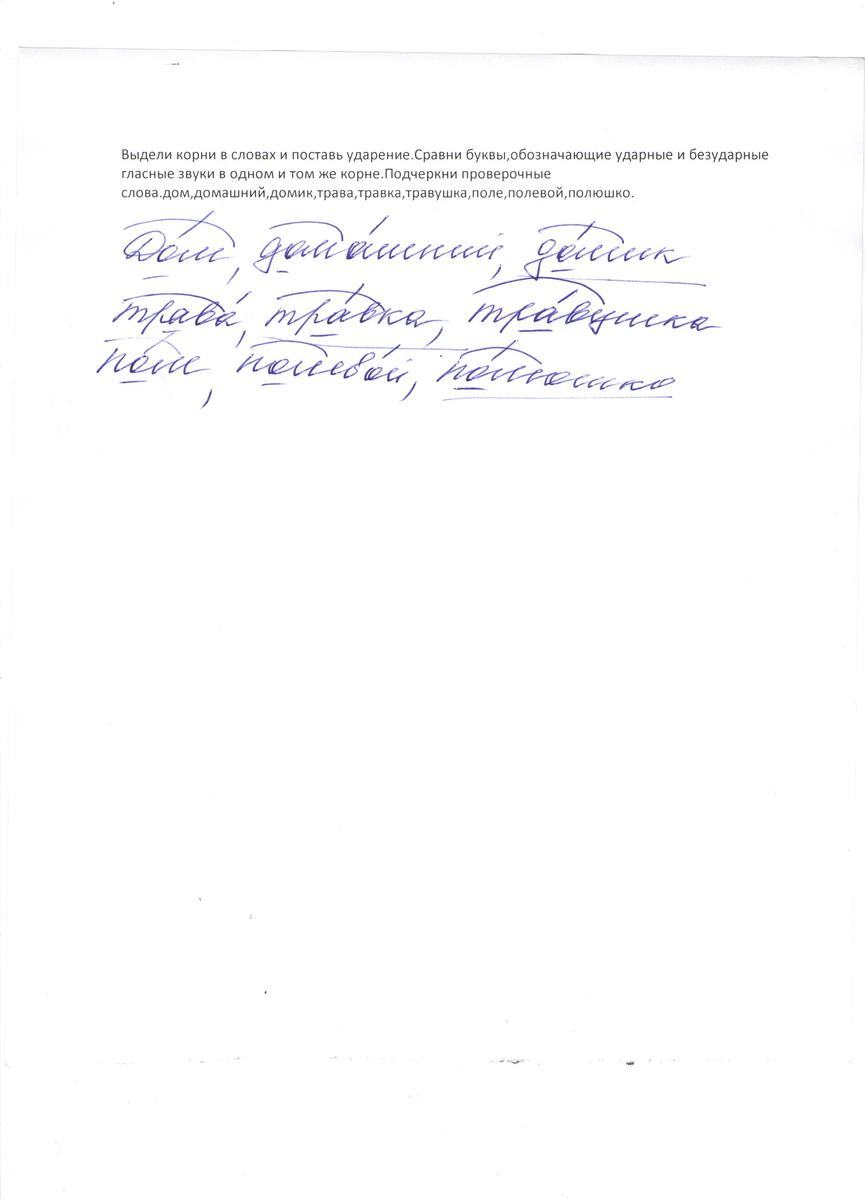 Выдели корни в словах и поставь ударение.Сравни буквы,обозначающие ударные и безударные
гласные звуки в одном и том же корне.Подчеркни проверочные
слова.дом,домашний,домик,трава,травка,травушка,поле,полевой,полюшко.
До́м, дома́шний, до́мик
трава́, тра́вка, тра́вушка
по́ле, полево́й, по́люшко